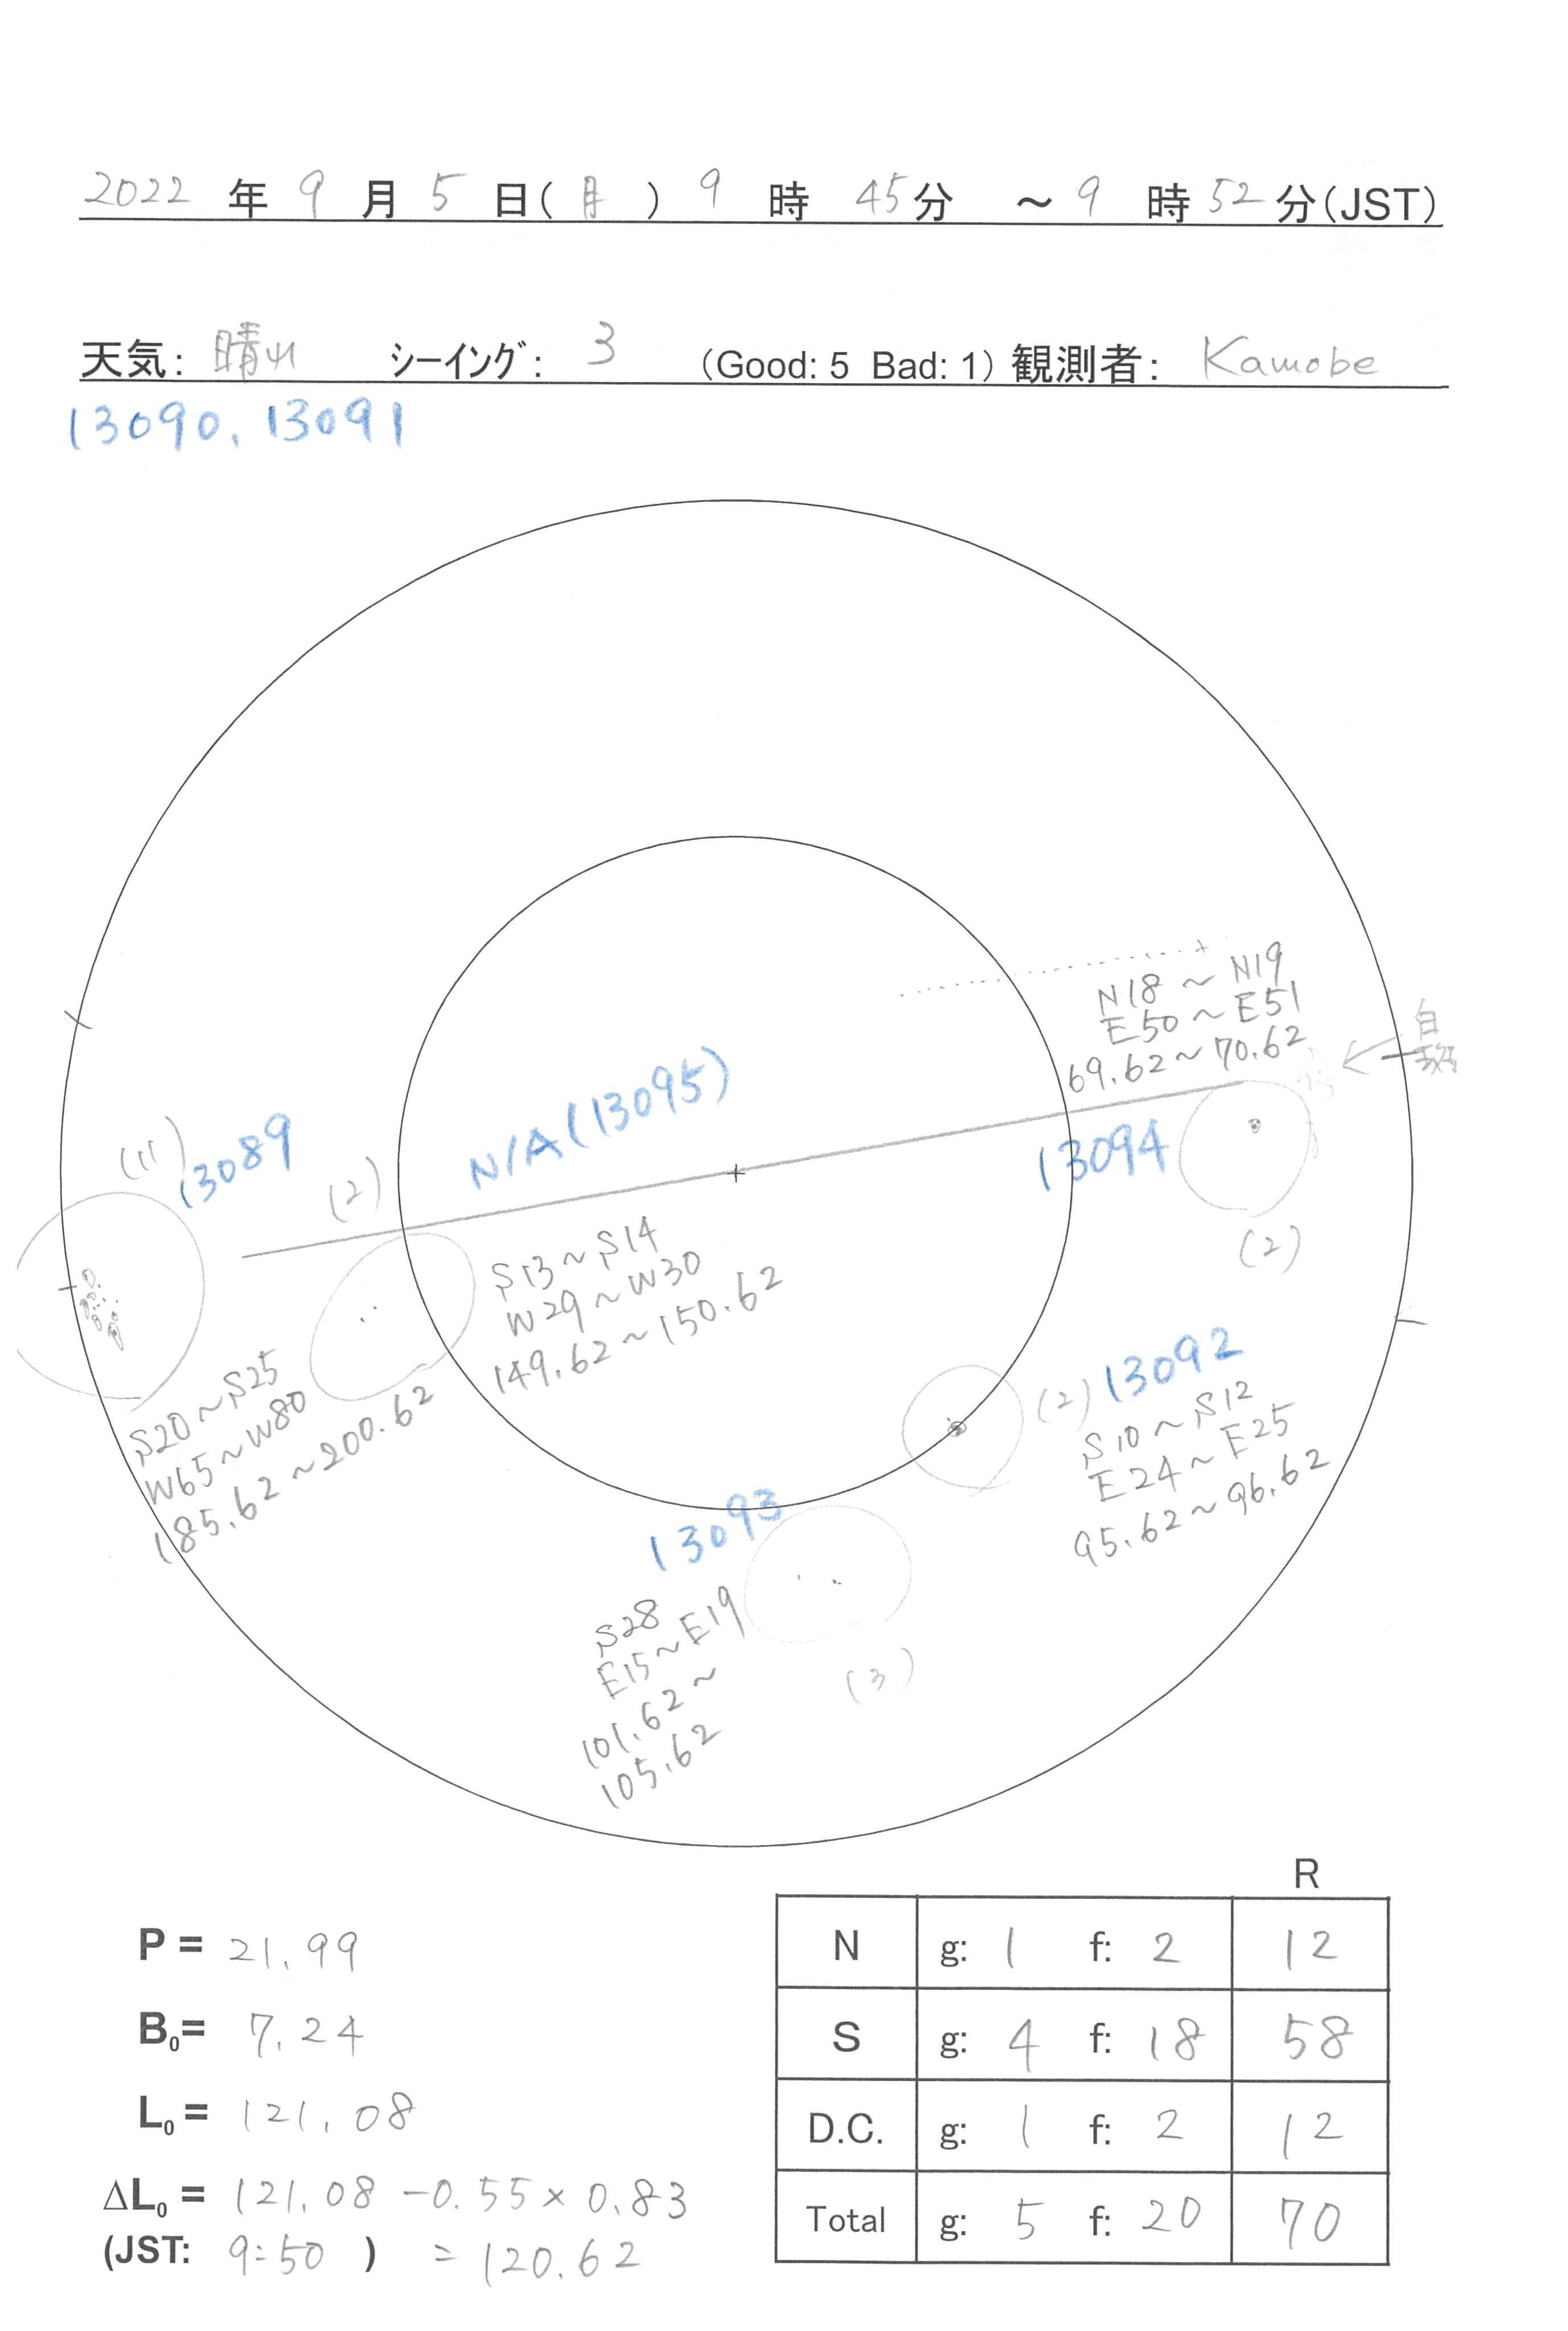 2022 年 9 月 5 日(月) 9 時 45分 ～9 時52分(JST)
天気: 晴れ シーイング: 3 (Good: 5 Bad: 1) 観測者: Kamobe
13090, 13091
N18～N19
E50～E51
69.62～70.62
白
N/A(13095)
(11)
13089
(2)
13094
(2)
S13～S14
W29～W30
149.62～150.62
S20～S25
W65～W80
185.62～200.62
(2) 13092
S10～S12
E24～E25
95.62～96.62
13093
S28
E15～E19
101.62～
105.62
(3)
R
P= 21.99
B₀= 7.24
L₀= 121.08
ΔL₀= 121.08 -0.55×0.83
(JST: 9:50 ) =120.62
N g: 1 f: 2 12
S g: 4 f: 18 58
D.C. g: 1 f: 2 12
Total g: 5 f: 20 70